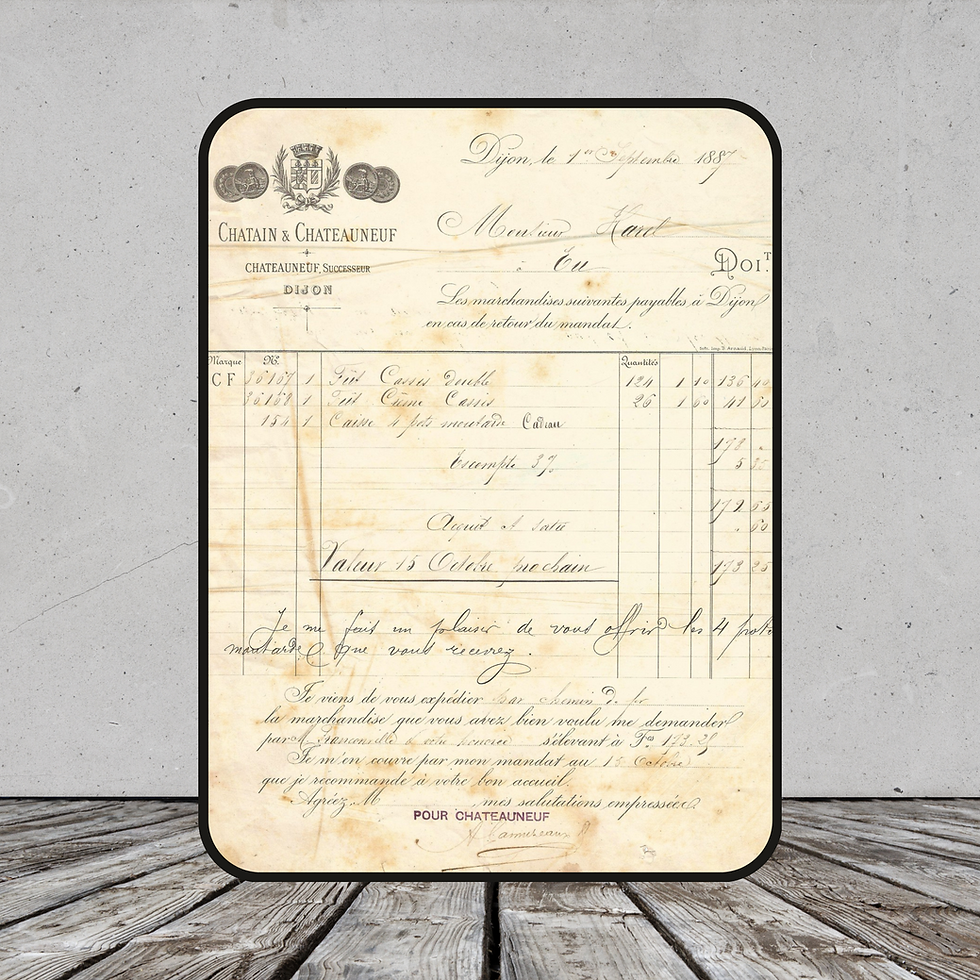 Dijon, le 1er Septembre 1887
CHATAIN & CHATEAUNEUF
Monsieur
CHATEAUNEUF, SUCCESSEUR
à Eu
DOIT
DIJON
Les marchandises suivantes payables à Dijon
en cas de retour du mandat.
Marque No. Quantités
C F 36167 1 Fût Cassis double 124 1 10 136 40
36168 1 Fût Crème Cassis 26 1 60 41 60
154 1 Caisse 4 pots moutarde Cadeau
178
Escompte 3% 5 35
Acquit et 60
Valeur 15 Octobre prochain 173 25
Je me fait un plaisir de vous offrir les 4 pots
moutarde que vous recevrez.
Je viens de vous expédier par chemin de fer
la marchandise que vous avez bien voulu me demander
par M. s'élevant à Frs 173.25
Je m'en couvre par mon mandat au 15 Octobre
que je recommande à votre bon accueil.
Agréez, M mes salutations empressées
POUR CHATEAUNEUF